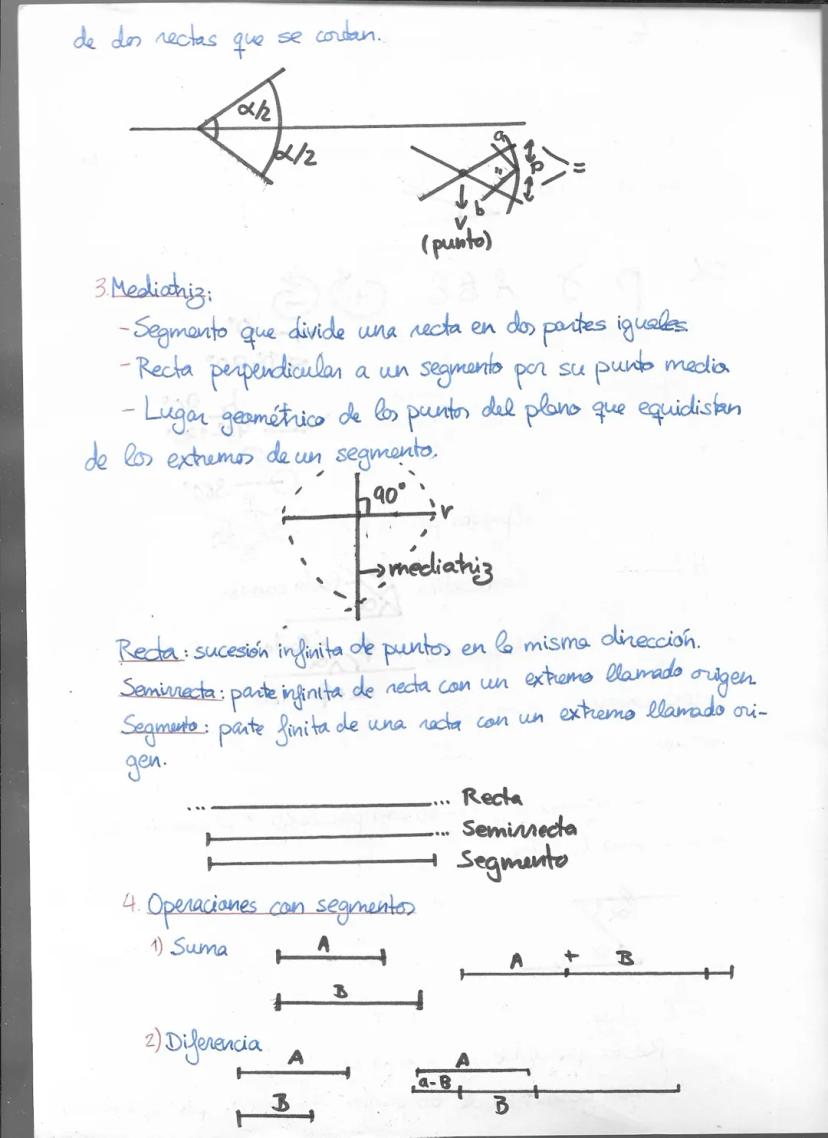 de dos rectas que se cortan.
α/2
α/2
a
p
=
b
V
(punto)
3. Mediatriz:
- Segmento que divide una recta en dos partes iguales
- Recta perpendicular a un segmento por su punto medio
- Lugar geométrico de los puntos del plano que equidistan
de los extremos de un segmento.
90°
r
mediatriz
Recta: sucesión infinita de puntos en la misma dirección.
Semirrecta: parte infinita de recta con un extremo llamado origen
Segmento: parte finita de una recta con un extremo llamado ori-
gen.
... ... Recta
... Semirrecta
Segmento
4. Operaciones con segmentos
1) Suma
A
A + B
B
2) Diferencia
A
A
a-B
B
B